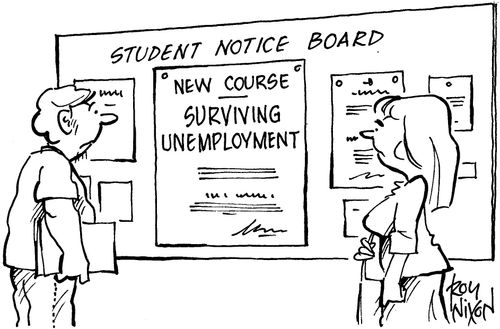 STUDENT NOTICE BOARD
NEW COURSE
SURVIVING
UNEMPLOYMENT
ROY
NIXON